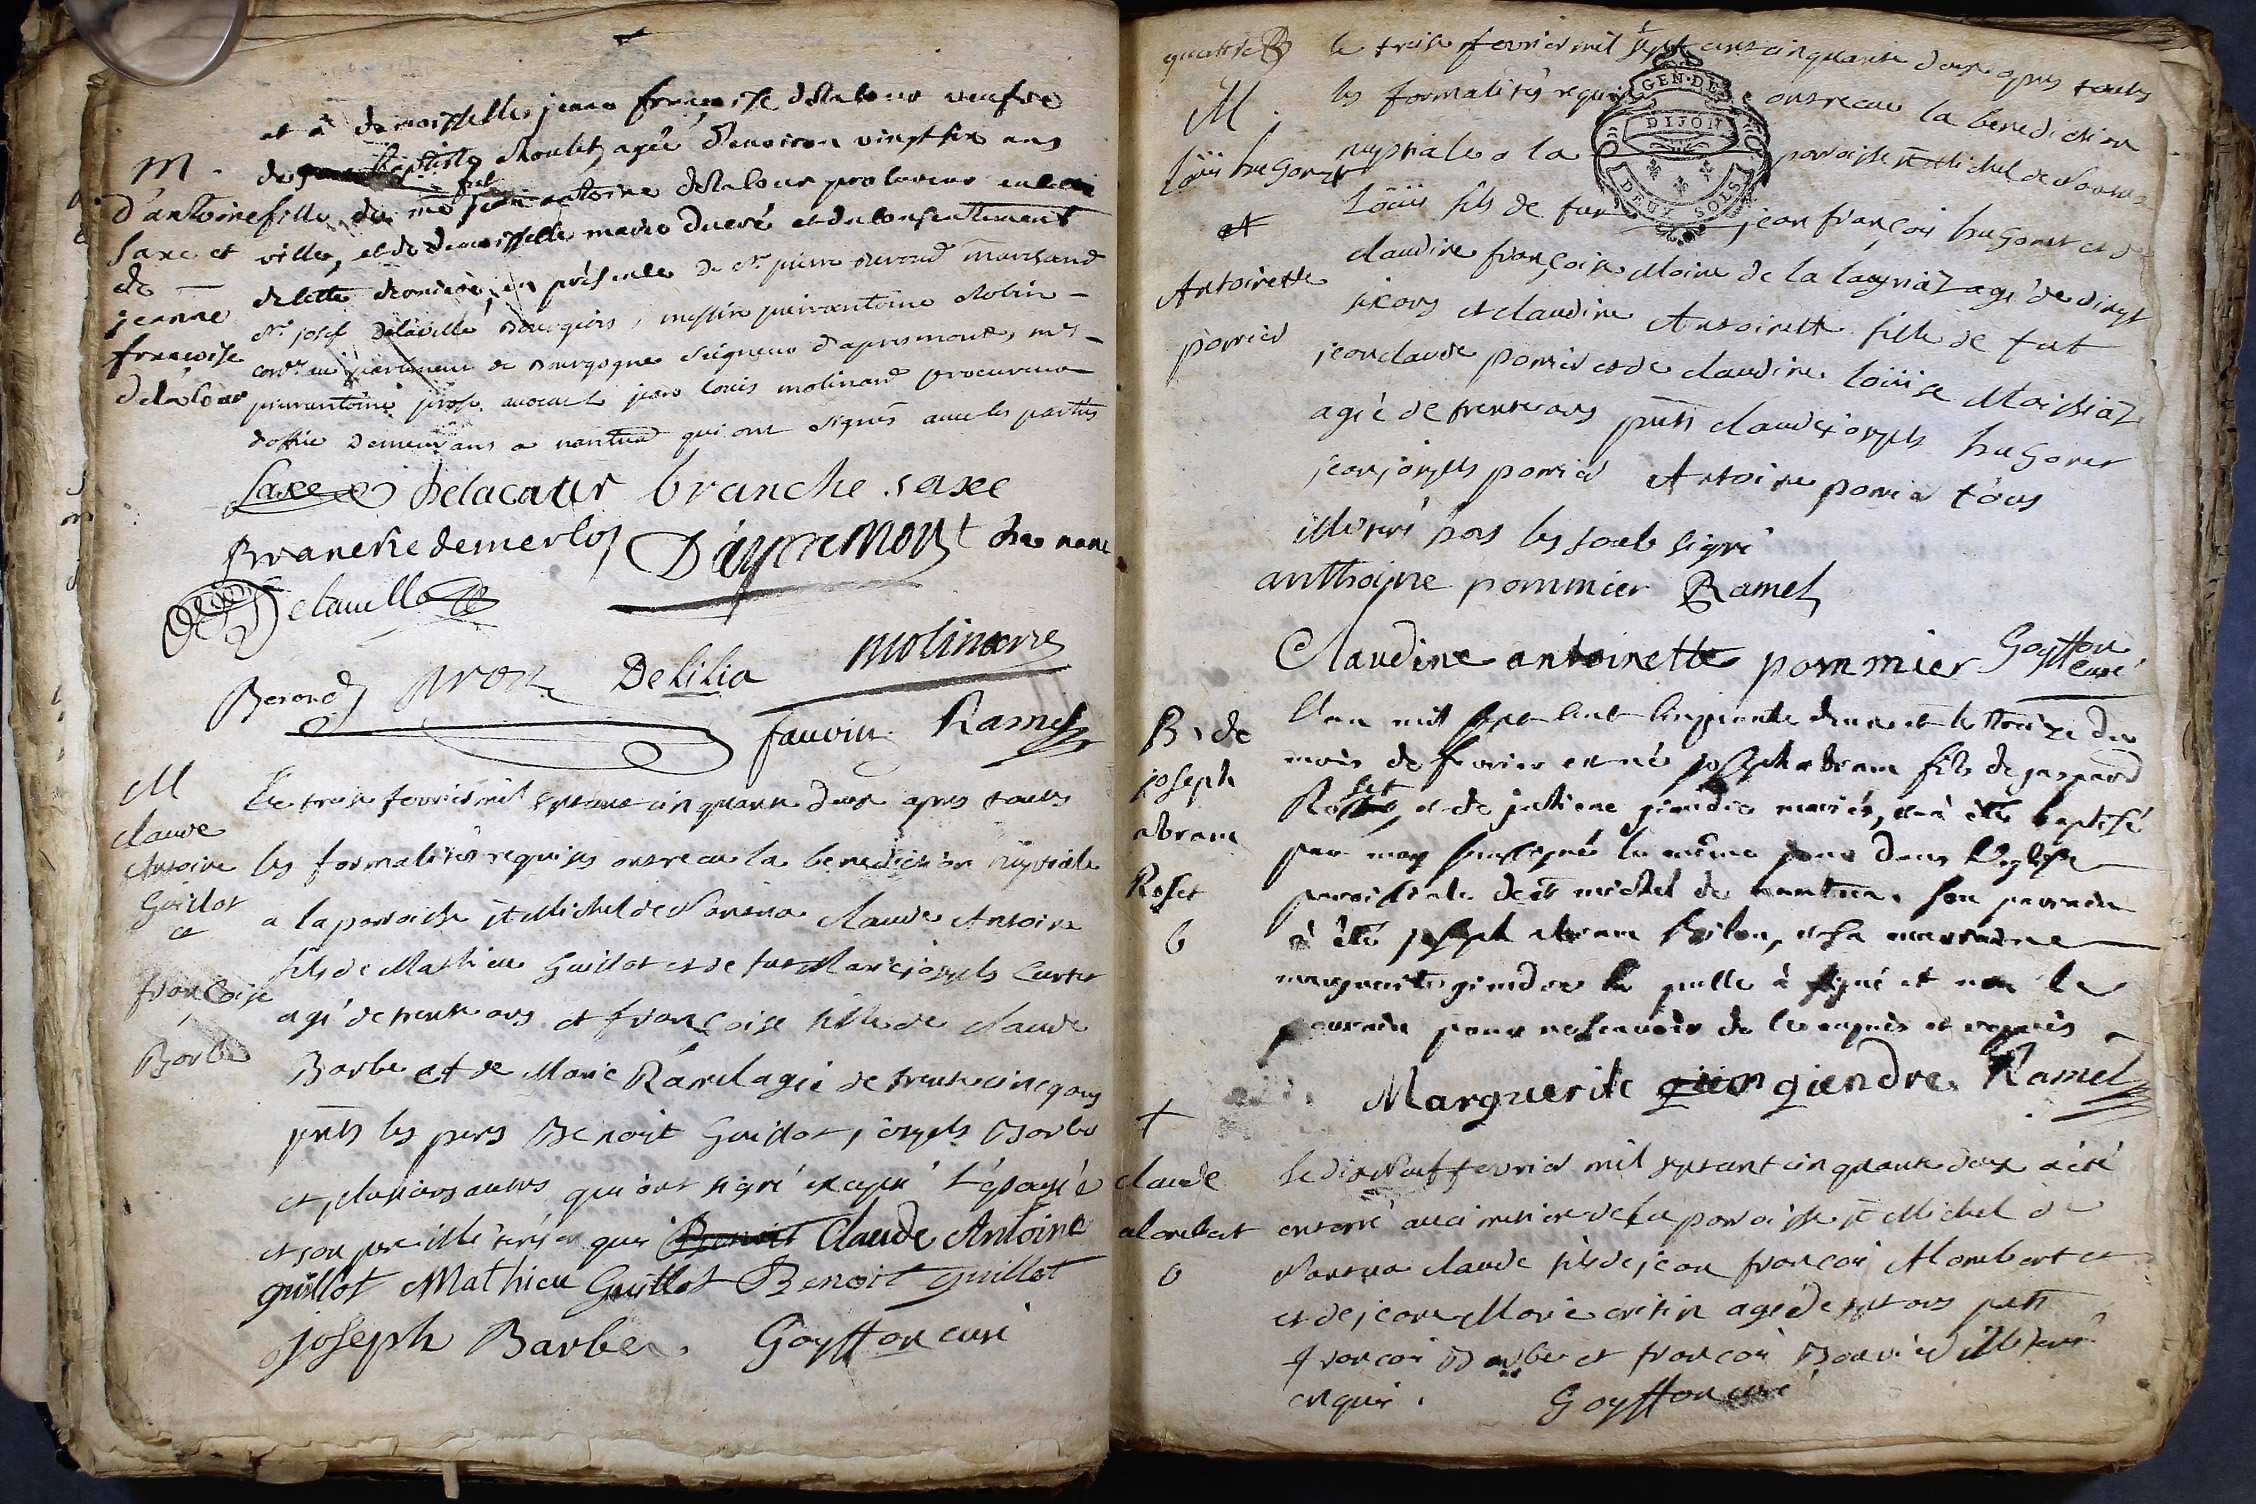 et à demoiselle jeane françoise delacour veufve
de jean baptiste Moulet, agée d'environ vingt six ans
fille de feu me jean antoine delacour procureur en cette
ville, et de demoiselle marie ducré et du consentement
de cette derniere, en présence de Sr pierre Beroud marchand
Sr josef Delaville Bourgeois, messire pierrantoine Robin
conr au parlement de Bourgogne Seigneur d'apremont, me
pierrantoine avocat jean louis molinard procureur
d'office demeurans a nantua qui ont signés avec les parties
M.
d'antoine
Saxe et
de
jeanne
françoise
delacour
Saxe Delacour branche saxe
Branche demerloz D'apremont
Delaville
Beroud Delilia molinard
fauvin Ramel
M
claude
Antoine
Guillot
et
françoise
Barbe
Le treise fevrier mil septcent cinquante deux apres toutes
les formalités requises ont recu la benediction nuptiale
a la paroisse st Michel de Nantua claude Antoine
fils de Mathieu Guillot et de fut Marie josephs Curtet
agé de trente ans et françoise fille de claude
Barbe et de Marie Ramel agée de trente cincq ans
pnts les peres Benoit Guillot, josephs Barbe
et plusieurs autres qui ont signé excepté l'épousée
et son pere illiterés enquis Benoit Claude Antoine
guillot Mathieu Guillot Benoit guillot
joseph Barbe. Goyffon curé
quattre
M.
Loüis hugonet
et
Antoinette
pomier
le treise fevrier mil sept cent cinquante deux apres toutes
les formalités requises ont recue la benediction
nuptiale a la paroisse st Michel de Nantua
Loüis fils de fut jean françois hugonet et de
claudine françoise Moine de la agé de vingt
six ans et claudine Antoinette fille de fut
jean claude pomier et de claudine loüise
agée de trente ans pnts claude josephs hugonet
jean josephs pomier Antoine pomier tous
illiterés hors les soub signé
anthoine pommier Ramel
Claudine antoinette pommier Goyffon curé
GEN. DE
DIJON
DEUX SOLS
B. de
joseph
abram
Roset
6
L'an mil sept cent cinquante deux et le treize du
mois de fevrier est né joseph abram fils de gaspard
Roset, et de juliene giendre mariés, et a été baptisé
par moy soussigné le même jour dans l'eglise
paroissiale de st michel de nantua. son parrain
à été joseph abram, et sa marraine
marguerite giendre la quelle à signé et non le
parrain pour ne sçavoir de ce enquis et requis
Marguerite gien giendre. Ramel
+
claude
alombert
0
Le dix Neuf fevrier mil septcent cinquante deux a été
enterré au cimetiere de la paroisse st Michel de
Nantua claude fils de jean françois Alombert et
et de jeane Marie agé de sept ans pnts
françois Barbe et françois Bouvier illiterés
enquis. Goyffon curé